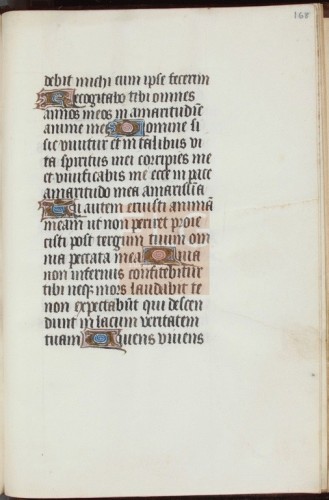 168
debit michi cum ipse fecerim
Recogitabo tibi omnes
annos meos in amaritudine
anime mee Domine si
sic vivitur et in talibus vi
ta spiritus mei corripies me
et vivificabis me ecce in pace
amaritudo mea amarissima
Tu autem eruisti animã
meam ut non periret proie
cisti post tergum tuum om
nia peccata mea Quia
non infernus confitebitur
tibi neqʒ mors laudabit te
non expectabũt qui descen
dunt in lacum veritatem
tuam Vivens vivens